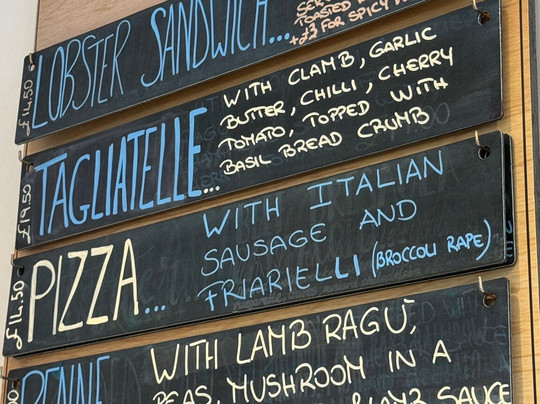 SCR
TOASTED
LOBSTER SANDWICH... +£2 FOR SPICY
£14.50
TAGLIATELLE... WITH CLAMB, GARLIC
BUTTER, CHILLI, CHERRY
TOMATO, TOPPED WITH
BASIL BREAD CRUMB
£19.50
PIZZA... WITH ITALIAN
SAUSAGE AND
FRIARIELLI (BROCCOLI RAPE)
£14.50
PENNE WITH LAMB RAGU,
PEAS, MUSHROOM IN A
LAMB SAUCE